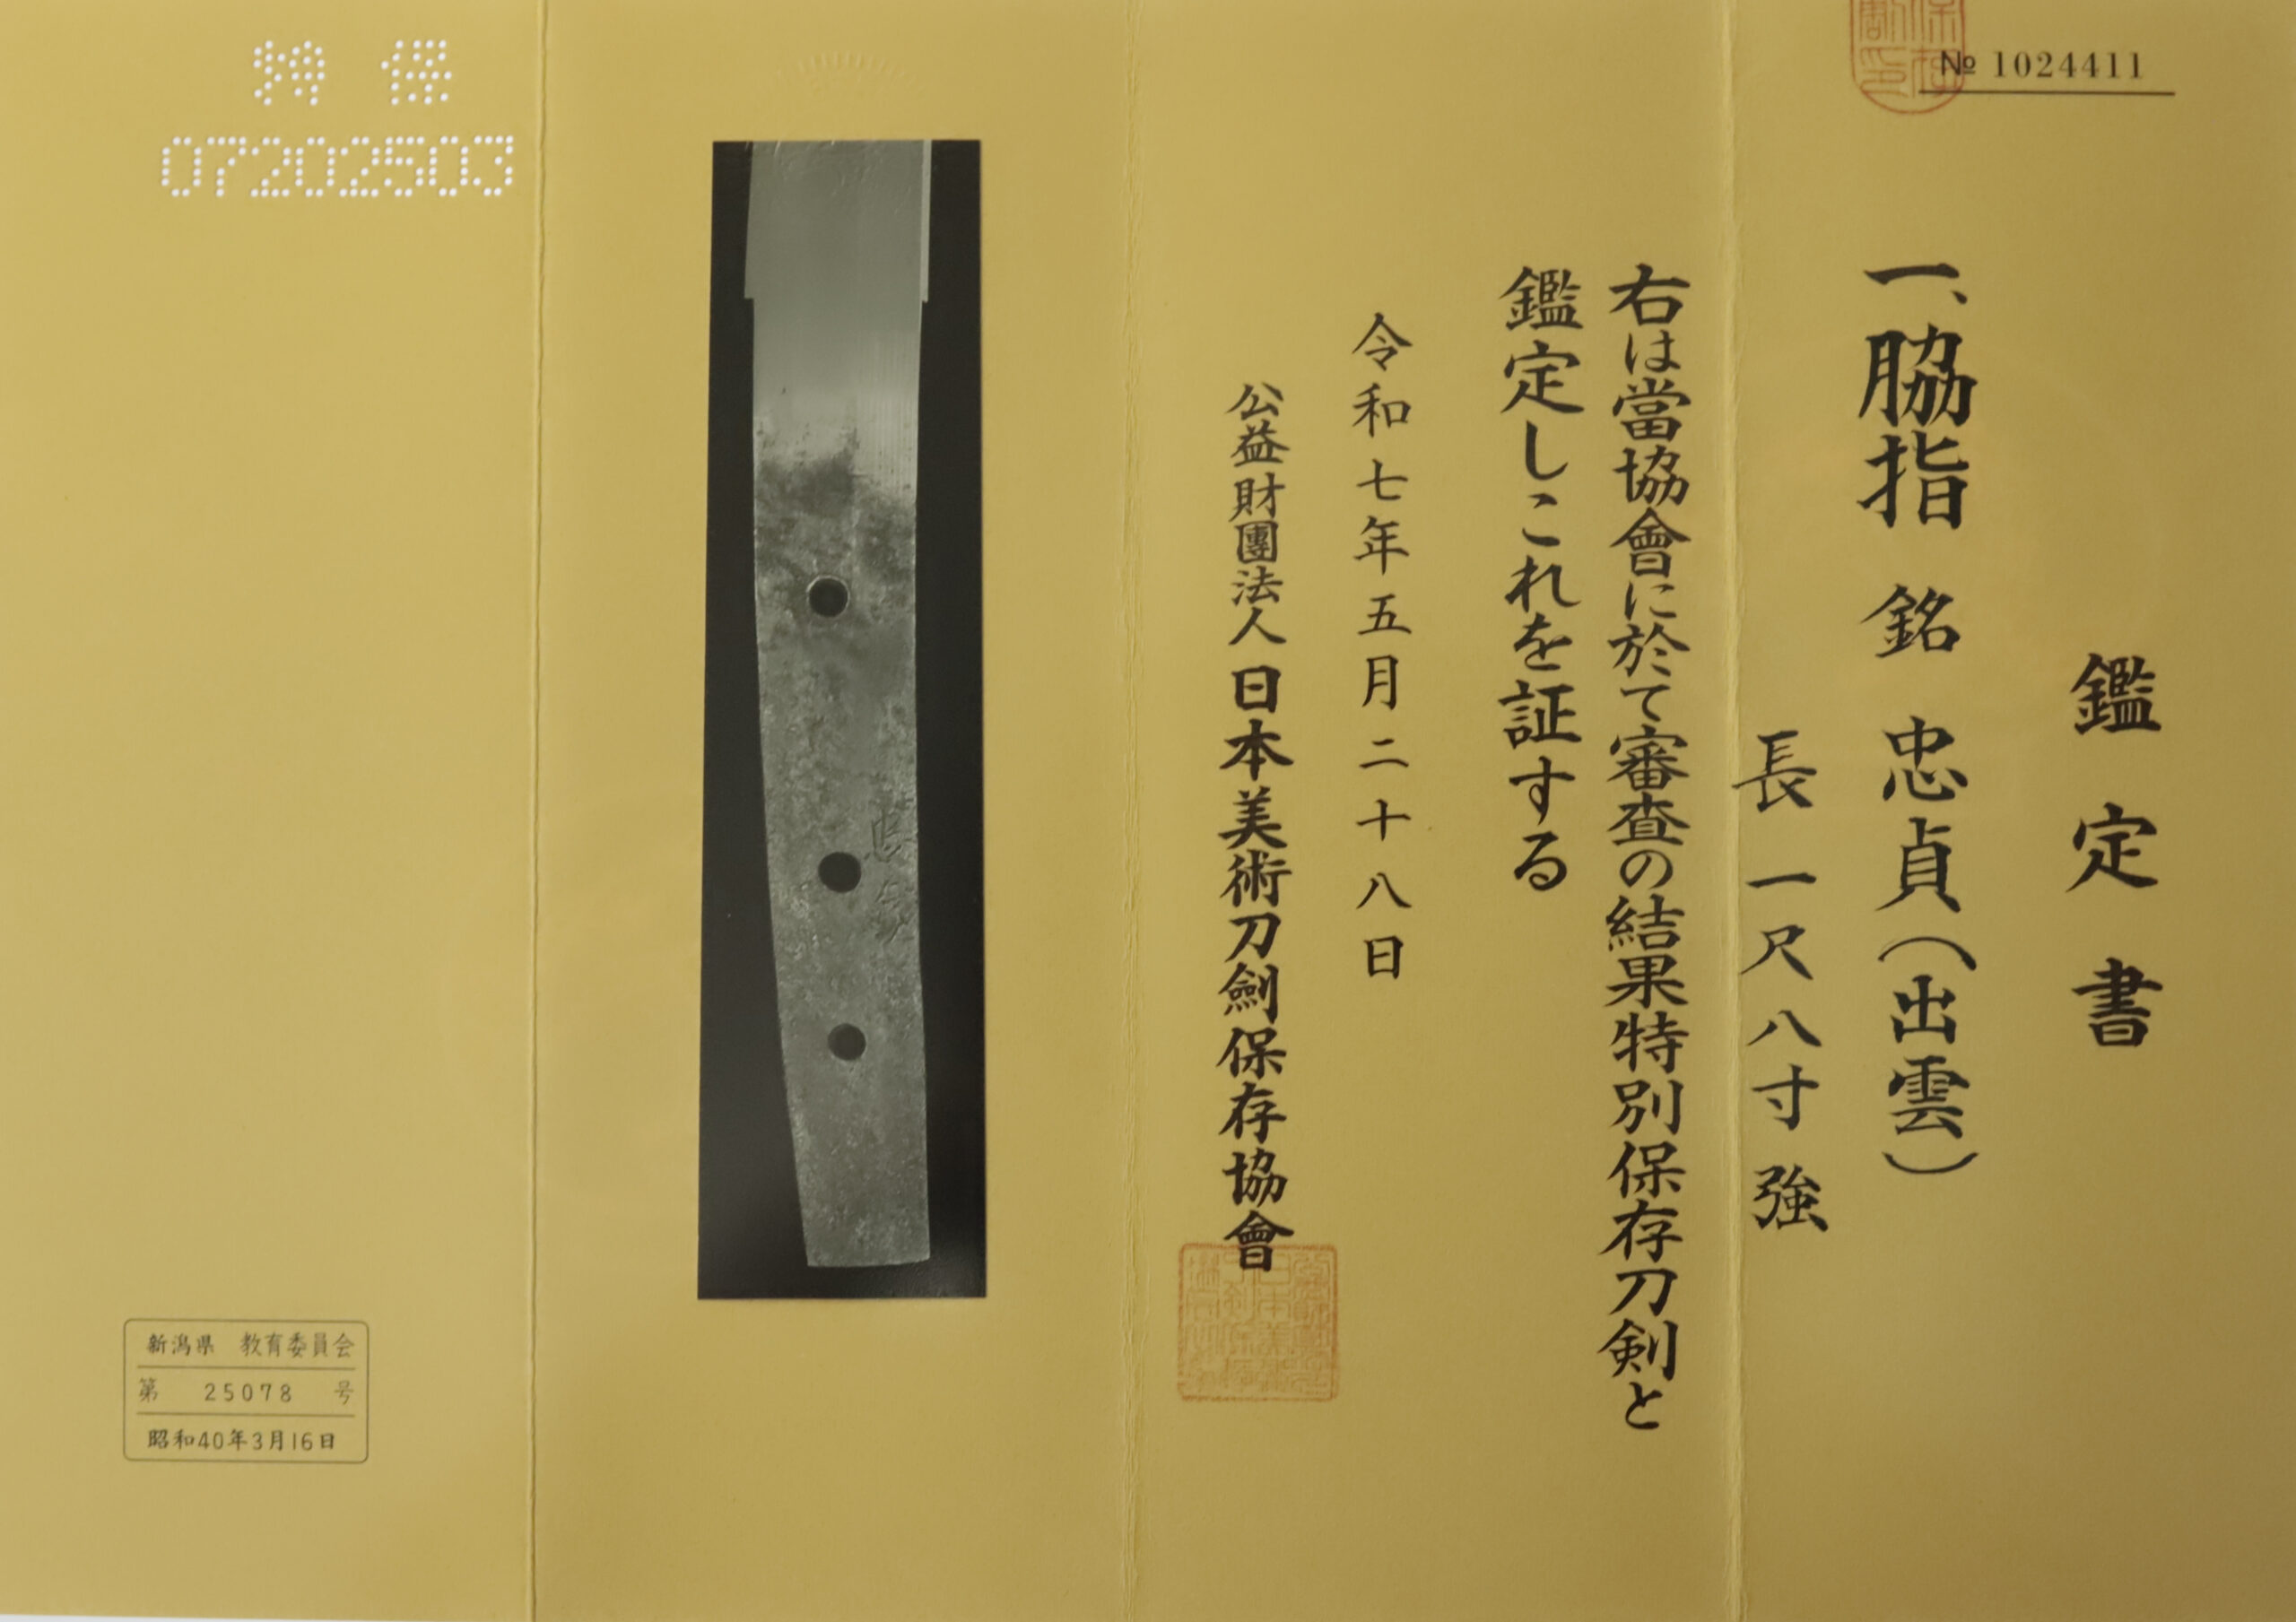 № 1024411
鑑定書
一、脇指 銘 忠貞(出雲)
長一尺八寸強
右は當協會に於て審査の結果特別保存刀剣と
鑑定しこれを証する
令和七年五月二十八日
公益財團法人日本美術刀劍保存協會
特保
07202503
新潟県 教育委員会
第 25078 号
昭和40年3月16日